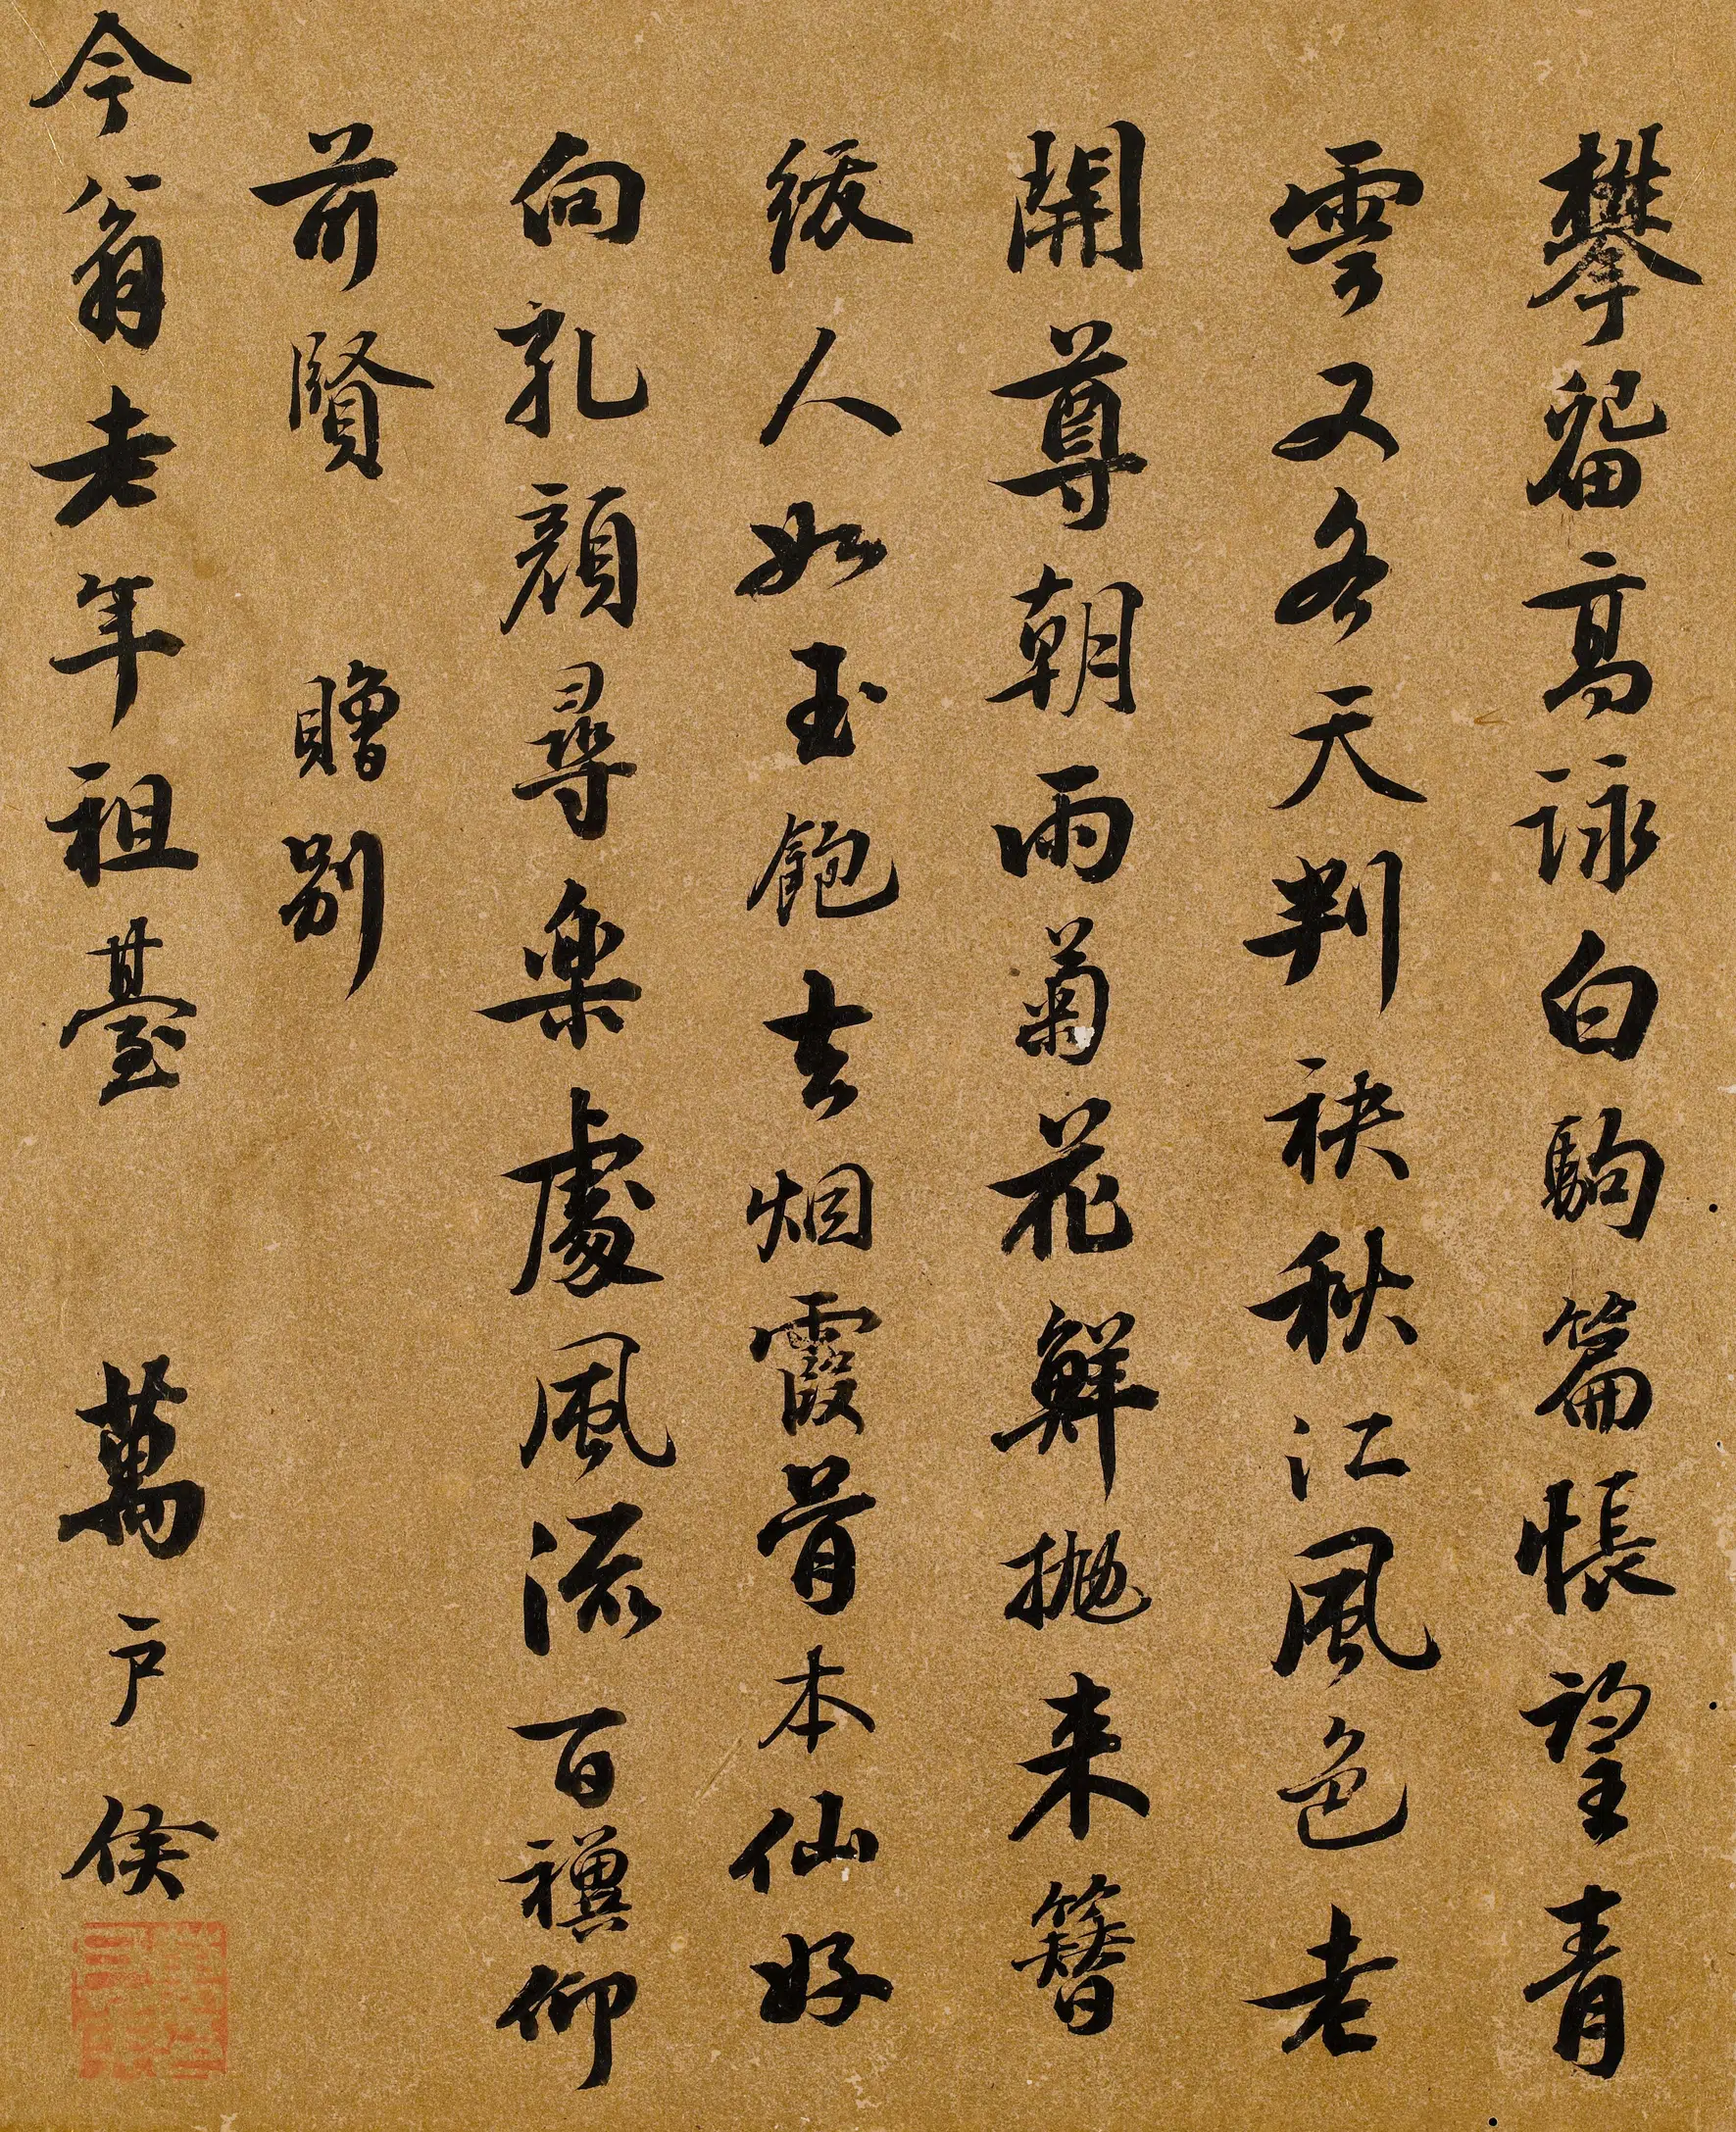 攀留高詠白駒篇悵望青
雲又各天判袂秋江風色老
開尊朝雨菊花鮮拋来簪
紱人如玉飽去烟霞骨本仙好
向孔顔尋樂處風流百禩仰
前賢 贈別
今翁老年祖臺 萬戶侯